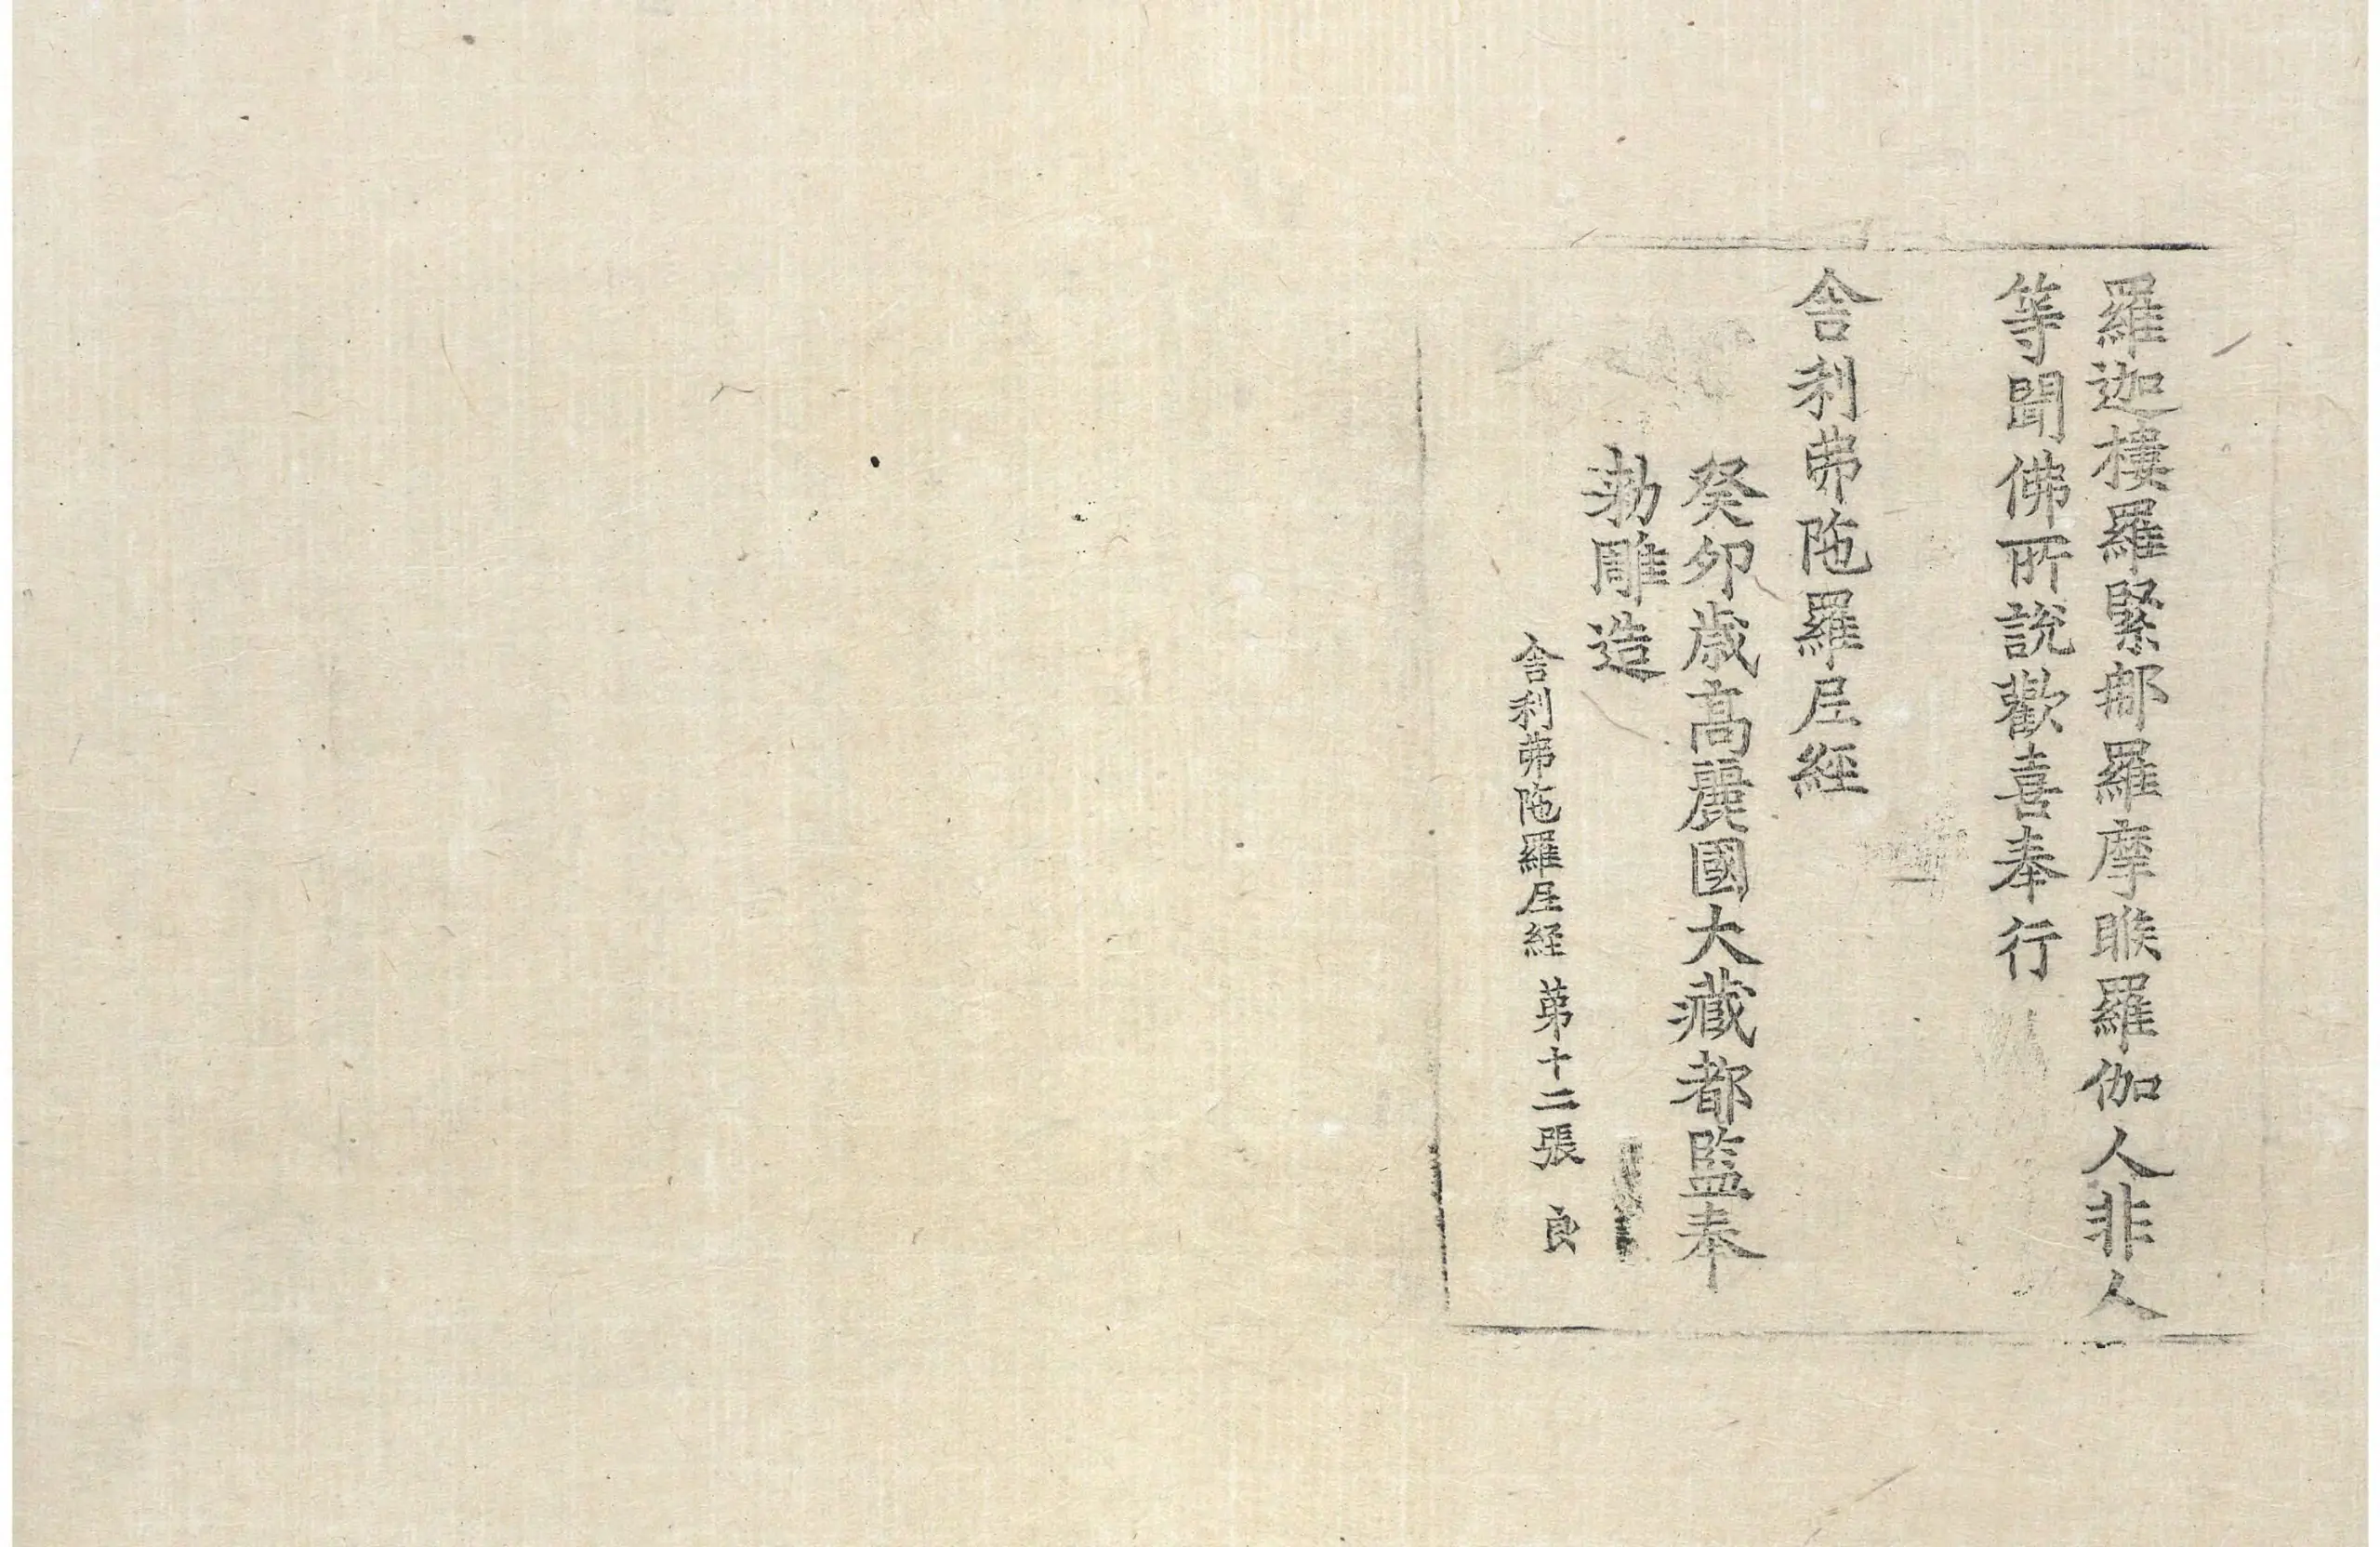 羅迦樓羅緊那羅摩睺羅伽人非人
等聞佛所說歡喜奉行
舍利弗陁羅尼經
癸卯歲高麗國大藏都監奉
勅雕造
舍利弗陁羅尼經 第十二張 良